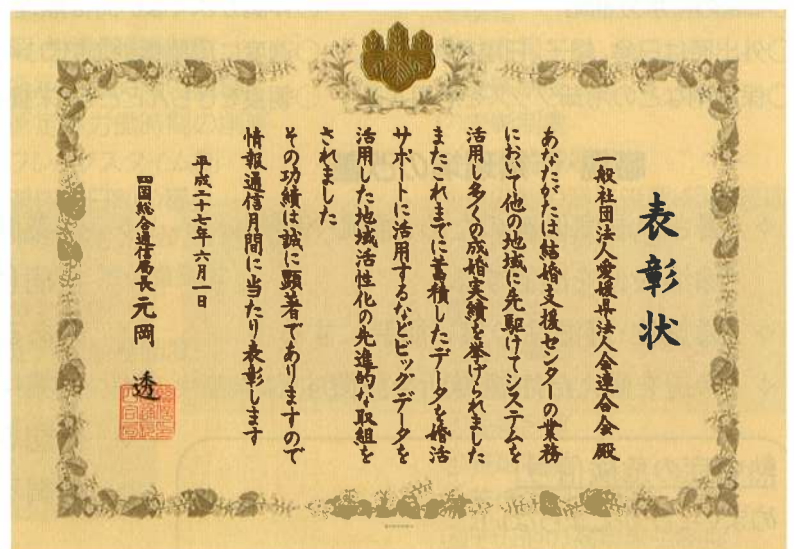 表彰状
一般社団法人愛媛県法人会連合会 殿
あなたがたは結婚支援センターの業務
において他の地域に先駆けてシステムを
活用し多くの成婚実績を挙げられました
またこれまでに蓄積したデータを婚活
サポートに活用するなどビッグデータを
活用した地域活性化の先進的な取組を
されました
その功績は誠に顕著でありますので
情報通信月間に当たり表彰します
平成二十七年六月一日
四国総合通信局長 元岡 透